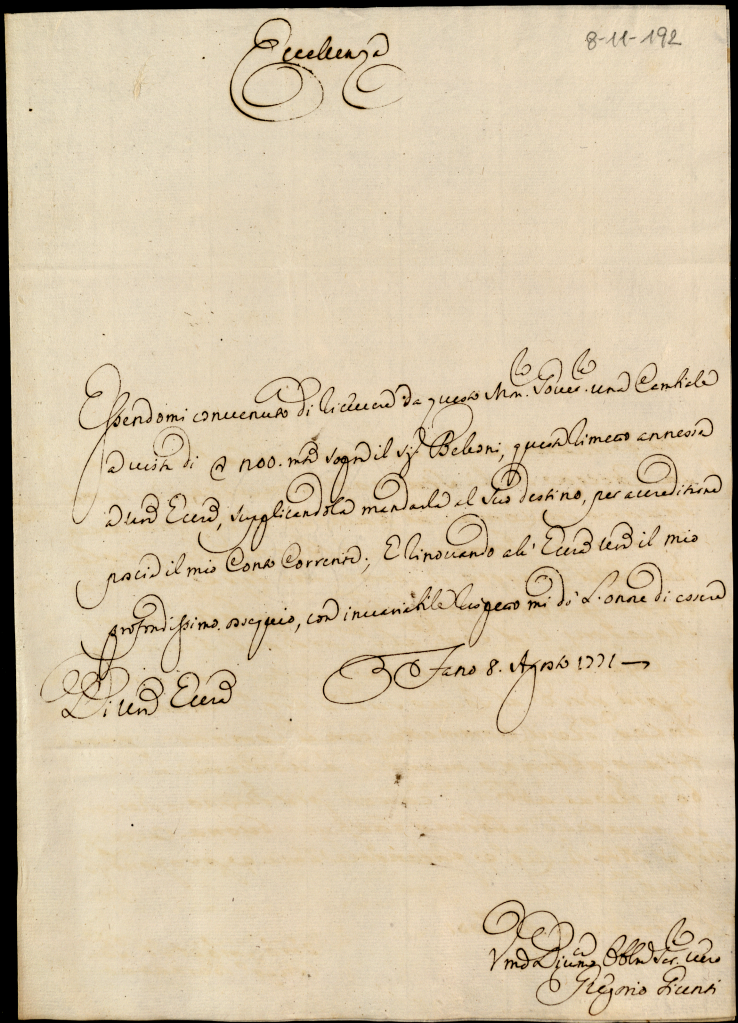 8-11-192
Eccellenza
Essendomi convenuto di ricevere da questo Mon. Gover. una Cambiale
a vista di 1700. mta sopra il Sig. Belloni, questa rimetto annessa
a vra Eccza, supplicandola mandarla al suo destino, per accreditarne
poscia il mio Conto Corrente; E rinovando all' Eccza vra il mio
profondissimo ossequio, con invariabile rispetto mi do' l'onore di essere
Di vra Eccza
Fano 8. Agosto 1771
Gregorio